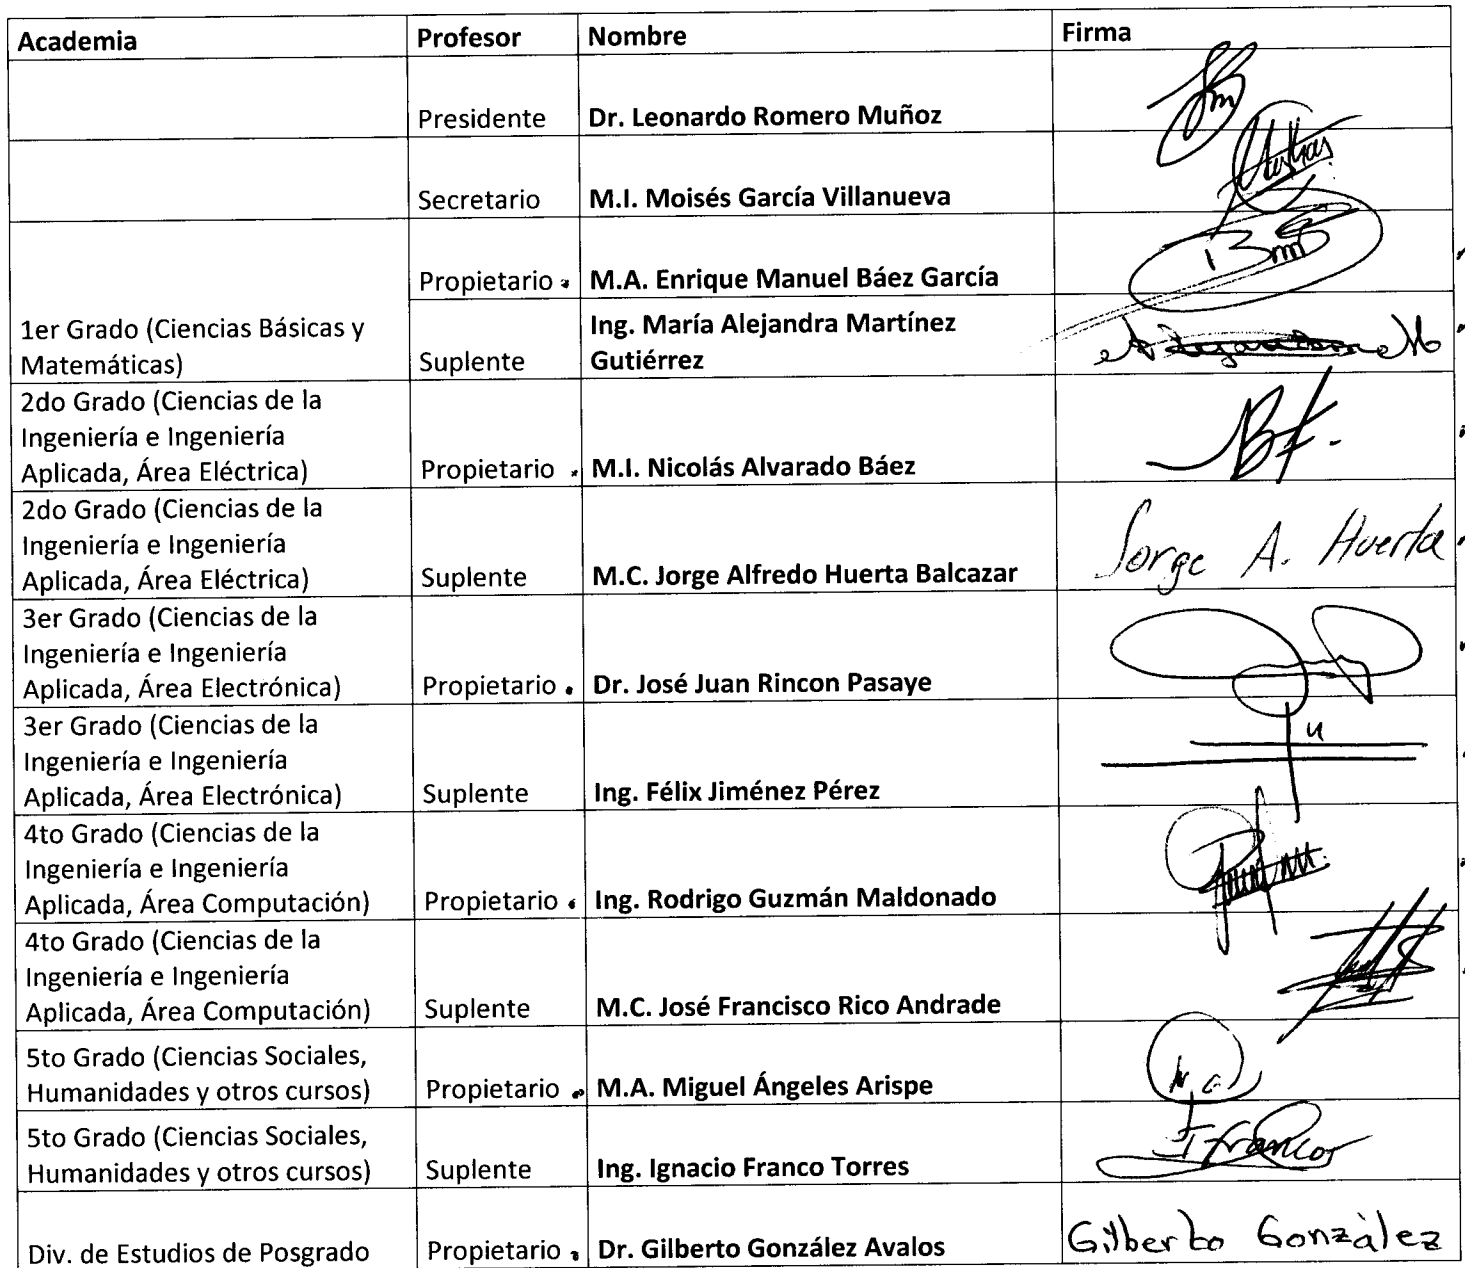 Academia Profesor Nombre Firma
Presidente Dr. Leonardo Romero Muñoz
Secretario M.I. Moisés García Villanueva
Propietario M.A. Enrique Manuel Báez García
1er Grado (Ciencias Básicas y
Matemáticas)
Suplente
Ing. María Alejandra Martínez
Gutiérrez
2do Grado (Ciencias de la
Ingeniería e Ingeniería
Aplicada, Área Eléctrica) Propietario M.I. Nicolás Alvarado Báez
2do Grado (Ciencias de la
Ingeniería e Ingeniería
Aplicada, Área Eléctrica) Suplente M.C. Jorge Alfredo Huerta Balcazar Jorge A. Huerta
3er Grado (Ciencias de la
Ingeniería e Ingeniería
Aplicada, Área Electrónica) Propietario Dr. José Juan Rincon Pasaye
3er Grado (Ciencias de la
Ingeniería e Ingeniería
Aplicada, Área Electrónica) Suplente Ing. Félix Jiménez Pérez
4to Grado (Ciencias de la
Ingeniería e Ingeniería
Aplicada, Área Computación) Propietario Ing. Rodrigo Guzmán Maldonado
4to Grado (Ciencias de la
Ingeniería e Ingeniería
Aplicada, Área Computación) Suplente M.C. José Francisco Rico Andrade
5to Grado (Ciencias Sociales,
Humanidades y otros cursos) Propietario M.A. Miguel Ángeles Arispe
5to Grado (Ciencias Sociales,
Humanidades y otros cursos) Suplente Ing. Ignacio Franco Torres
Div. de Estudios de Posgrado Propietario Dr. Gilberto González Avalos Gilberto Gonzàlez